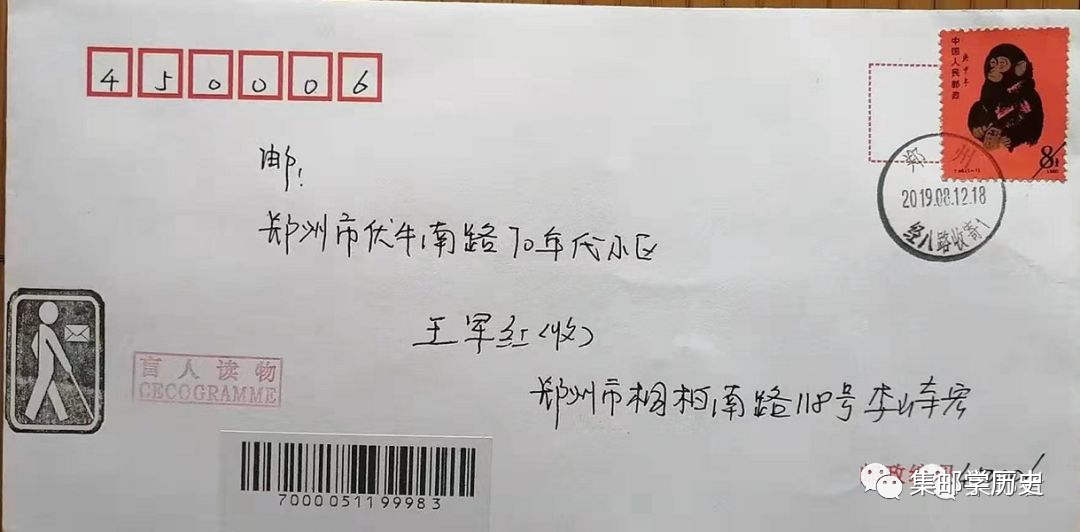 450006
中国人民邮政
庚申年
8分
T.46.(1-1)
1980
郑州
2019.08.12.18
经八路收寄1
邮:
郑州市伏牛南路70年代小区
王军红(收)
盲人读物
CECOGRAMME
郑州市桐柏南路118号李
7000051199983
邮政编码
集邮学历史